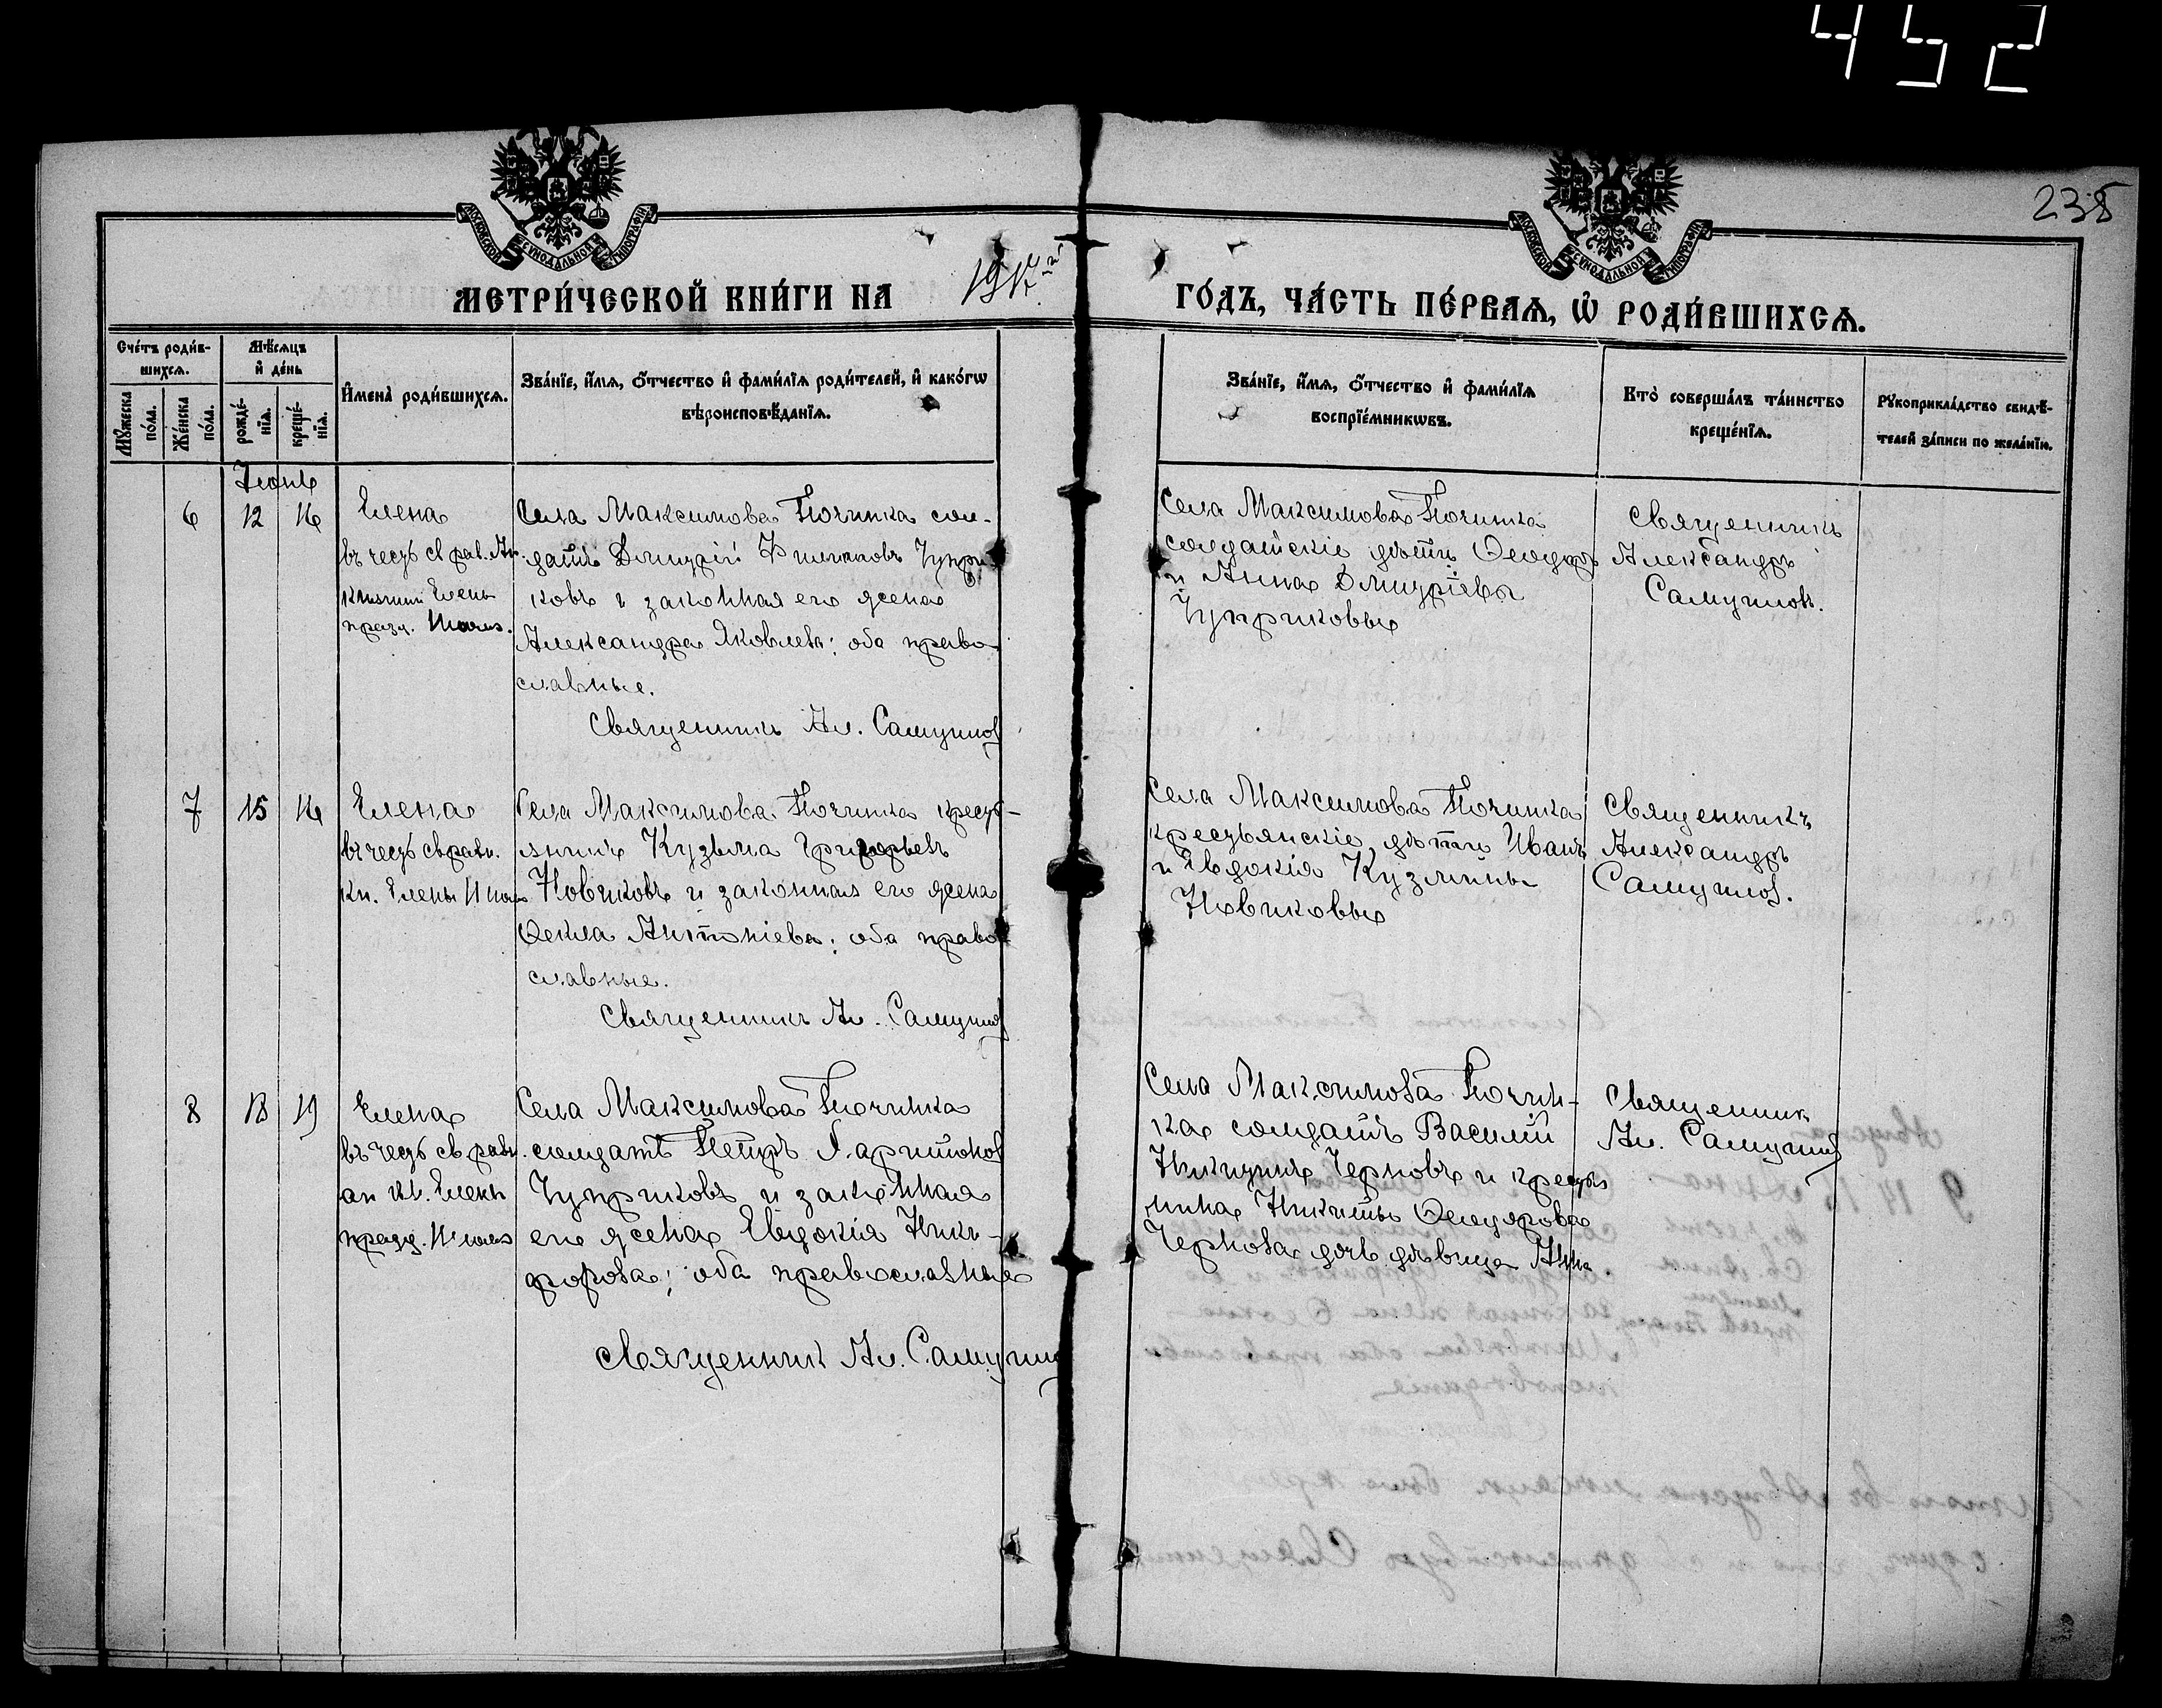 452
238
МОСКОВСКОЙ СѴНОДАЛЬНОЙ ТИПОГРАФІИ
МОСКОВСКОЙ СѴНОДАЛЬНОЙ ТИПОГРАФІИ
МЕТРИ́ЧЕСКОЙ КНИ́ГИ НА
ГО́ДЪ, ЧА́СТЬ ПЕ́РВАѦ, Ѡ҆ РОДИ́ВШИХСѦ.
Сче́тъ роди́в-
шихсѧ.
Мꙋ́жеска по́ла.
Же́нска по́ла.
Мѣ́сѧцъ
и҆ де́нь
рожде́-
нїѧ.
креще́-
нїѧ.
И҆мена̀ роди́вшихсѧ.
Зва́нїе, и҆́мѧ, ѻ҆́тчество и҆ фами́лїѧ роди́телей, и҆ како́гѡ
вѣроисповѣ́данїѧ.
Зва́нїе, и҆́мѧ, ѻ҆́тчество и҆ фами́лїѧ
воспрїе́мникѡвъ.
Кто̀ соверша́лъ та́инство
креще́нїѧ.
Рꙋкоприкла́дство свидѣ́-
телей за́писи по жела́нїю.
Іюнь
6 12 16
Елена
въ честь св. рав. Ап.
княгини Елены
празд.
Села Максимова Починка сол-
датъ Димитрій Филиповъ Чупри-
ковъ и законная его жена
Александра Яковлева; оба право
славные.
Священникъ Ал. Самуилов
Села Максимова Починка
солдатскіе дѣти Ѳеодоръ
и Анна Димитріевы
Чуприковы
Священникъ
Александръ
Самуилов.
7 15 16
Елена
въ честь св. равн.
кн. Елены
Села Максимова Починка кресть-
янинъ Кузьма Григорьевъ
Новиковъ и законная его жена
Ѳекла Антоніева; оба право
славные.
Священникъ Ал. Самуилов
Села Максимова Починка
крестьянскіе дѣти Иванъ
и Евдокія Кузмины
Новиковы
Священникъ
Александръ
Самуилов.
8 18 19
Елена
въ честь св. равн.
ап. кн. Елены
празд.
Села Максимова Починка
солдатъ Петръ Харитонов
Чуприковъ и законная
его жена Евдокія Ники-
форова; оба православные
Священник Ал. Самуилов
Села Максимова Почин-
ка солдатъ Василій
Никитинъ Черновъ и крестья
нина Никиты Ѳеодорова
Чернова дочь дѣвица Анна.
Священник
Ал. Самуилов